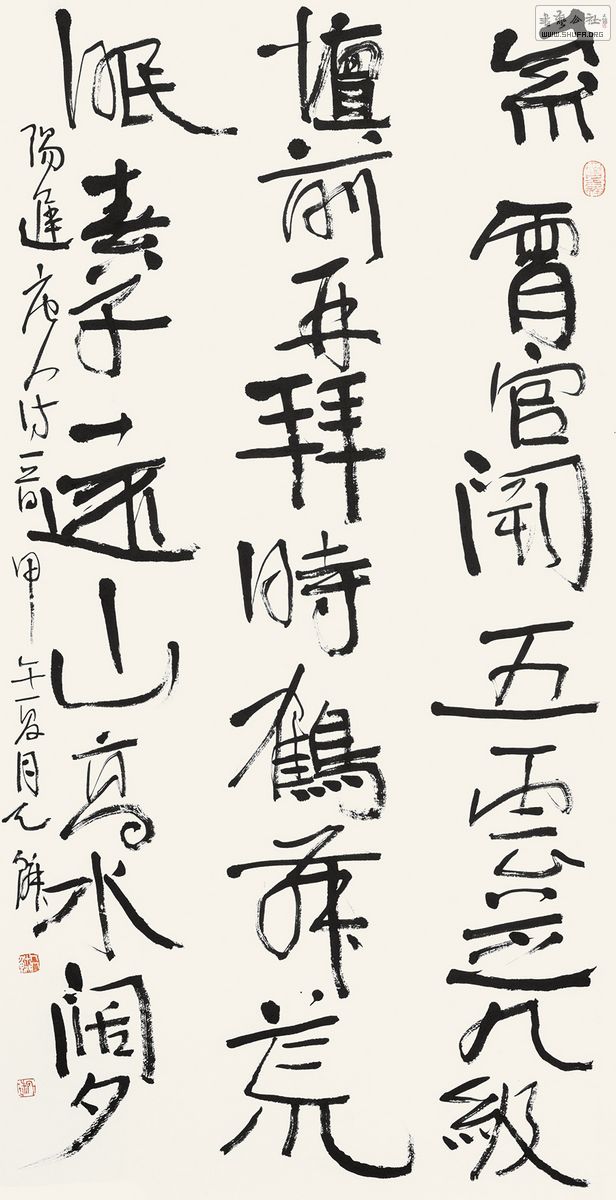 書藝公社
WWW.SHUFA.ORG
紫霄宮闕五雲芝九級
壇前再拜時鶴舞鹿
眠春草遠山高水闊夕
陽遲唐人詩一首甲午夏月